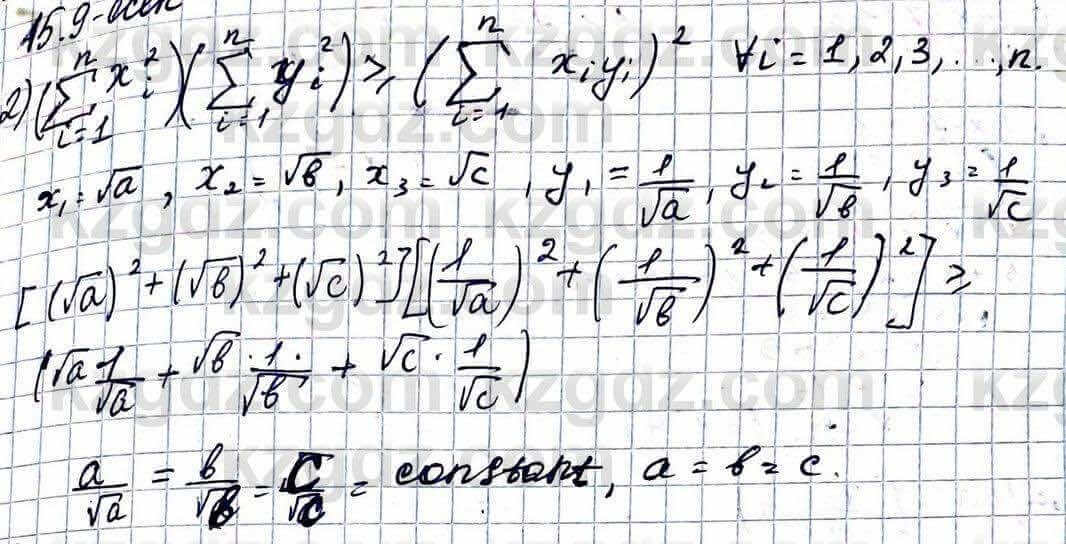 15.9-есеп
2) (∑_{i=1}^{n} x_i^2)(∑_{i=1}^{n} y_i^2) ≥ (∑_{i=1}^{n} x_i y_i)^2 ∀i = 1, 2, 3, ..., n.
x_1 = √a, x_2 = √b, x_3 = √c, y_1 = 1/√a, y_2 = 1/√b, y_3 = 1/√c
[(√a)^2 + (√b)^2 + (√c)^2][(1/√a)^2 + (1/√b)^2 + (1/√c)^2] ≥
(√a 1/√a + √b · 1/√b + √c · 1/√c)
a/√a = b/√b = c/√c = constant, a = b = c.
kzgdz.com